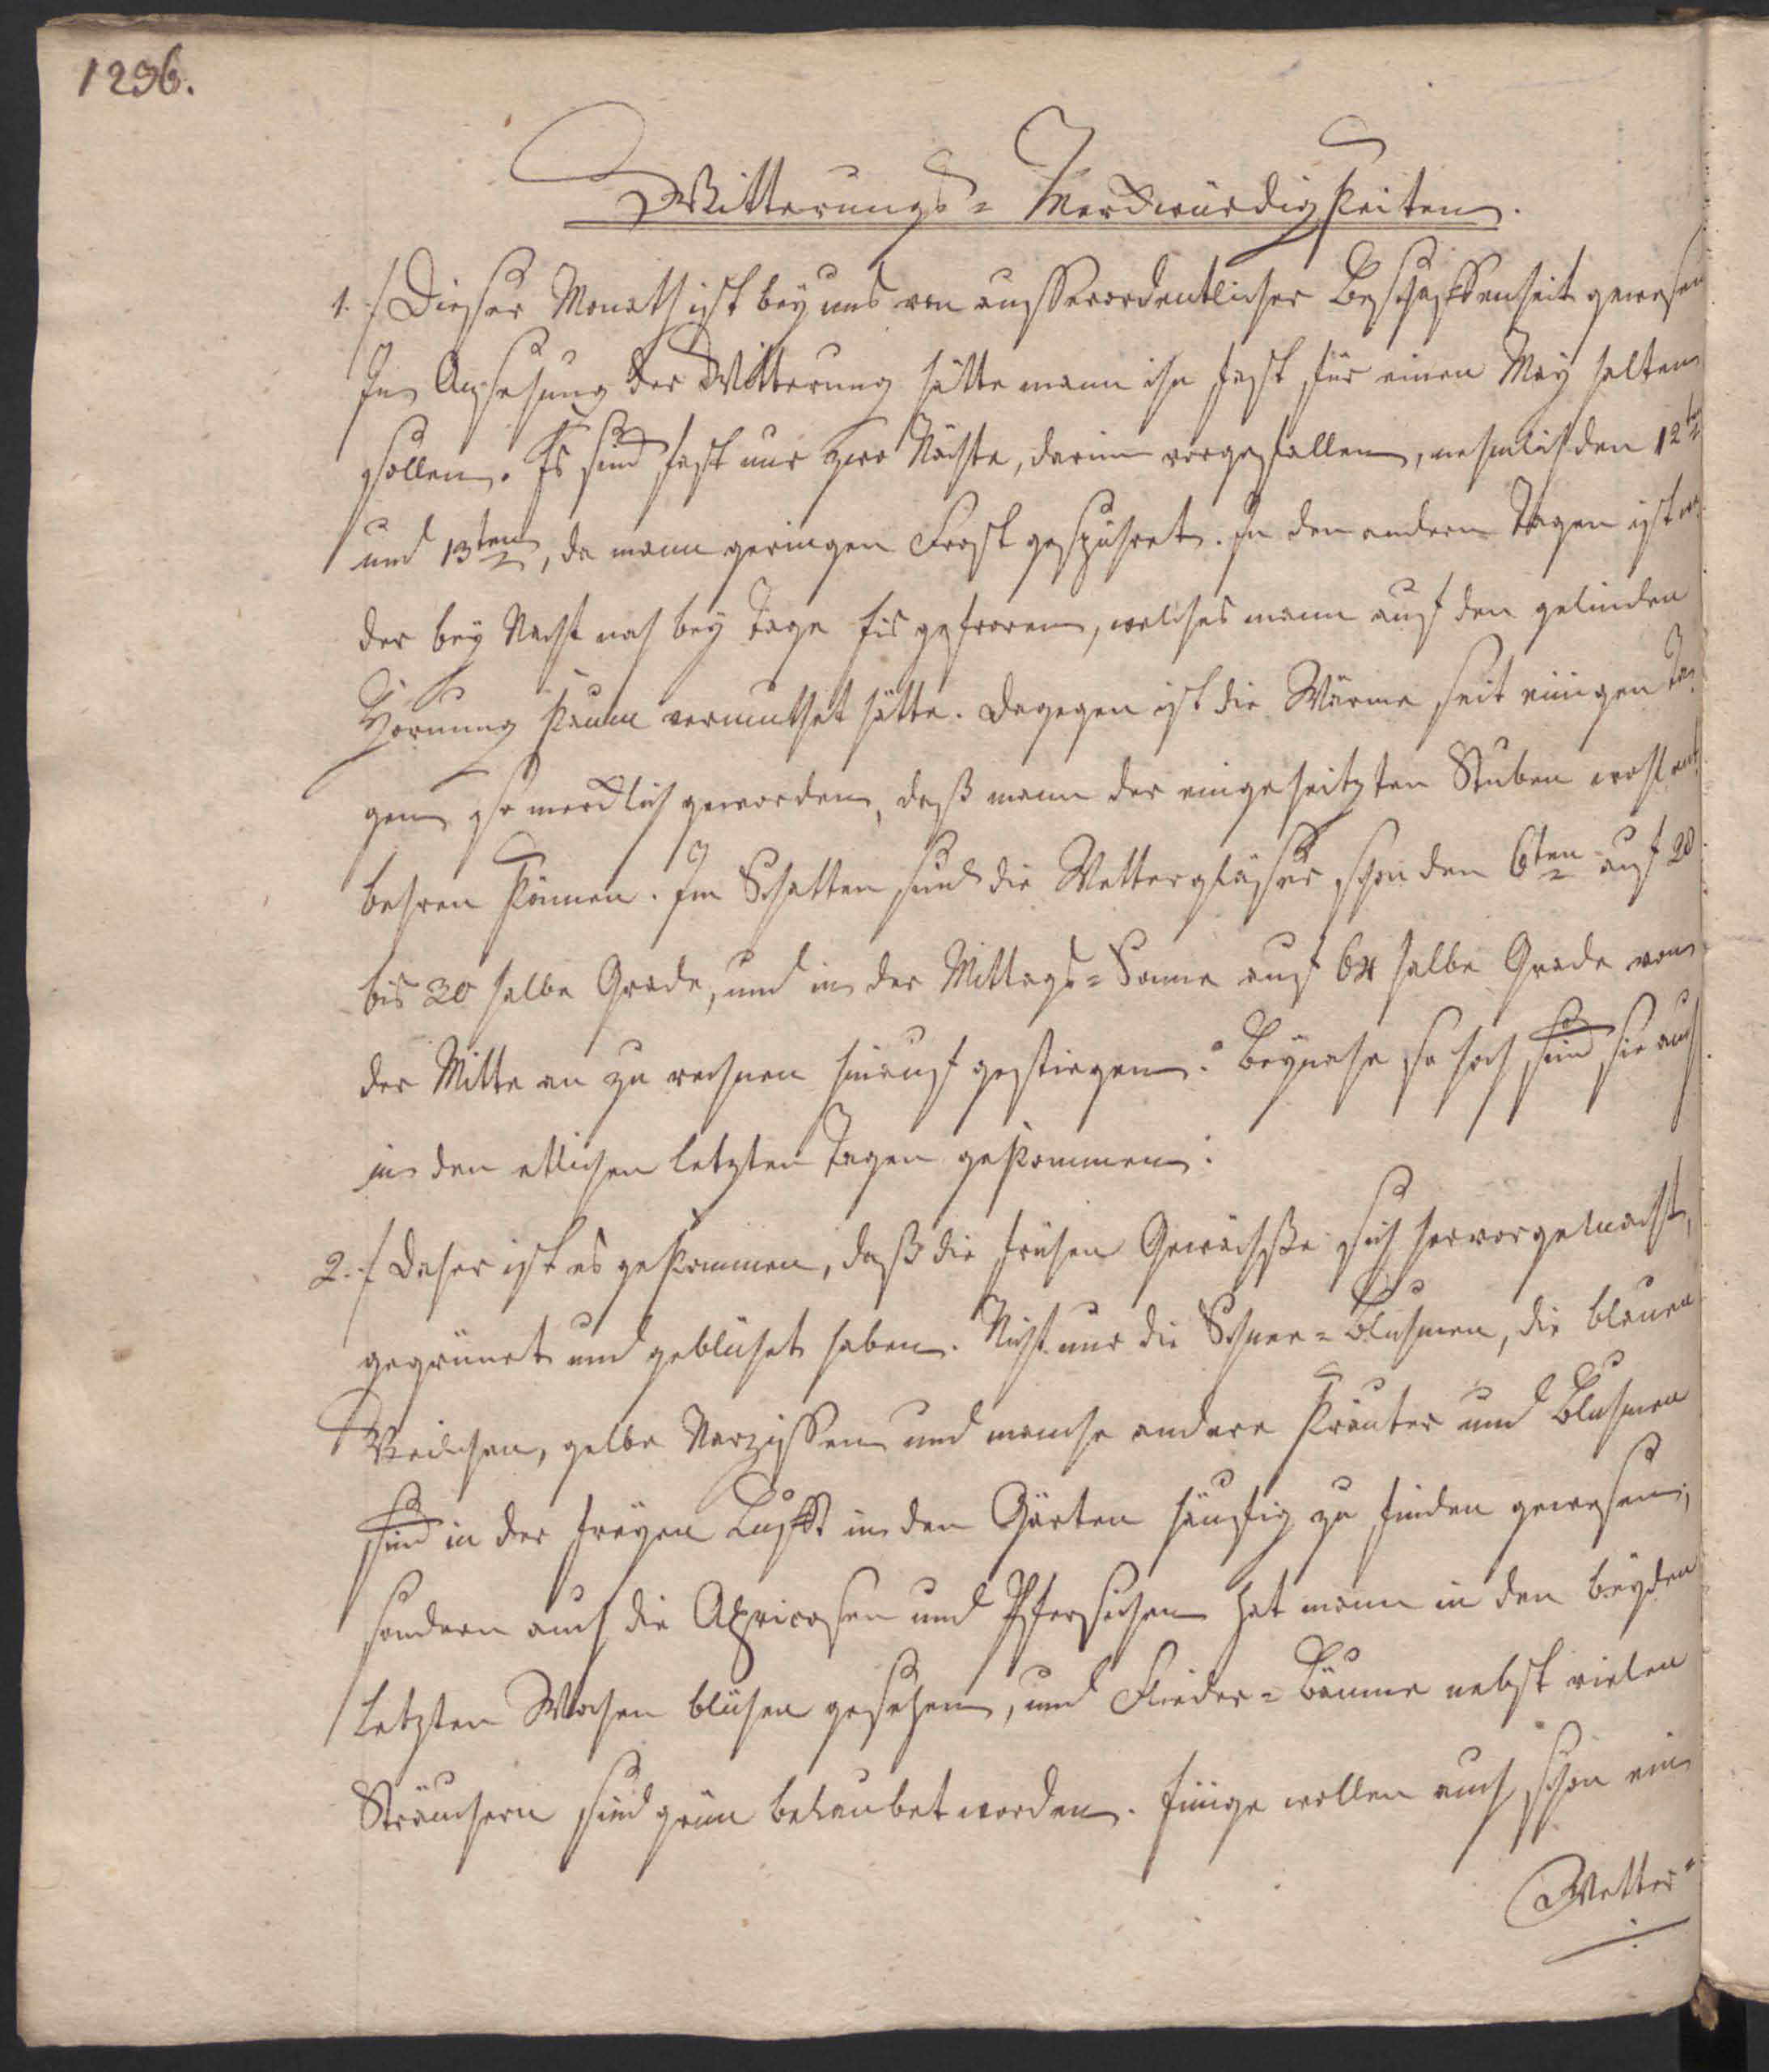 1296.
Witterungs= Merckwürdigkeiten.
1. / Dieser Monath ist bey uns von ausserordentlicher Beschaffenheit gewesen
In Ansehung der Witterung hätte mann ihn fast für einen May halten
sollen. Es sind fast nur zwo Nächte, darinn vorgefallen, nehmlich den 12ten
und 13ten, da mann geringen Frost gespühret. In den andern Tagen ist we-
der bey Nacht noch bey Tage Eis gefroren, welches mann auf den gelinden
Hornung kaum vermuthet hätte. Dagegen ist die Wärme seit einigen Ta-
gen so mercklich geworden, daß mann der eingeheitzten Stuben wohl ent-
behren können. Im Schatten sind die Wettergläser schon den 6ten auf 28
bis 30 halbe Grade, und in der Mittags=Sonne auf 64 halbe Grade von
der Mitte an zu rechnen hinauf gestiegen. Beynahe so hoch sind sie auch
in den etlichen letzten Tagen gekommen.
2. / Daher ist es gekommen, daß die frühen Gewächse sich hervorgemacht,
gegrünet und geblühet haben. Nicht nur die Schnee=Bluhmen, die blauen
Veilchen, gelbe Narzissen und manche andere Kräuter und Bluhmen
sind in der freyen Lufft in den Gärten häufig zu finden gewesen;
sondern auch die Apricosen und Pfersichen hat mann in den beyden
letzten Wochen blühen gesehen, und Flieder=Bäume nebst vielen
Sträuchern sind grün belaubet worden. Einige wollen auch schon ein
Wetter=